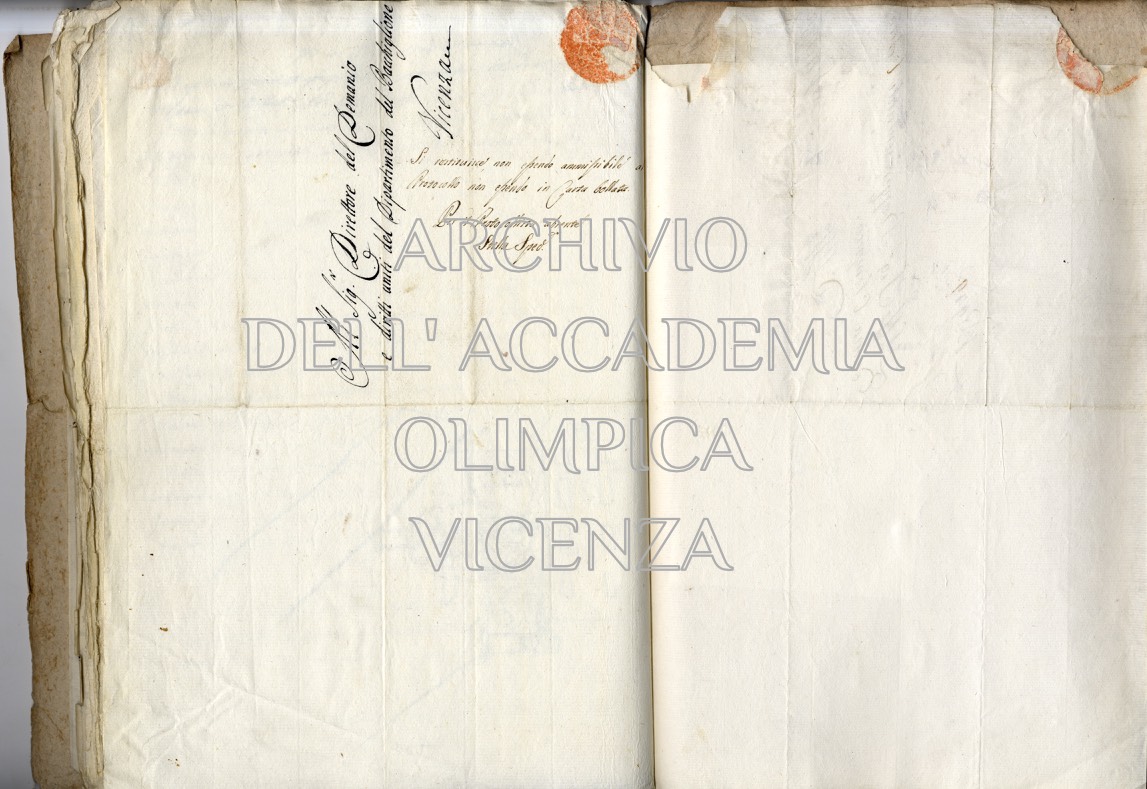 Al Sig.r Direttore del Demanio
e diritti uniti del Dipartimento del Bacchiglione
Vicenza
Si restituisce non essendo ammissibile al
Protocollo non essendo in Carta bollata
Per il Protocollista
Sped.e
ARCHIVIO
DELL' ACCADEMIA
OLIMPICA
VICENZA